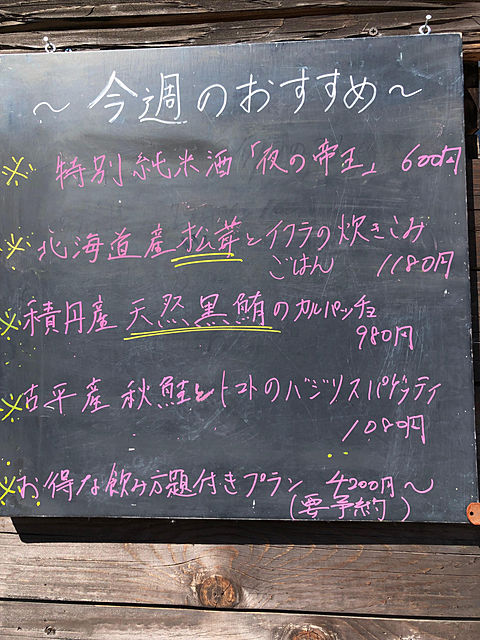 ～今週のおすすめ～
※ 特別純米酒「夜の帝王」 600円
※ 北海道産松茸とイクラの炊きこみ
ごはん 1180円
※ 積丹産天然黒鮪のカルパッチョ
980円
※ 古平産秋鮭とトマトのバジリスパゲッティ
1080円
※ お得な飲み放題付きプラン 4200円～
(要予約)